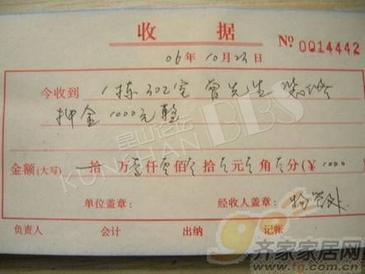 收据
06年10月23日
No 0014442
今收到 1栋302室 曾先生 装修
押金1000元整
金额(大写) 拾 万 壹仟 零佰 零拾 零元 零角 零分(¥ 1000
单位盖章: 经收人盖章:
负责人 会计 出纳 记帐
昆山论坛
KUNSHAN BBS
齐家家居网
www.tg.com.cn